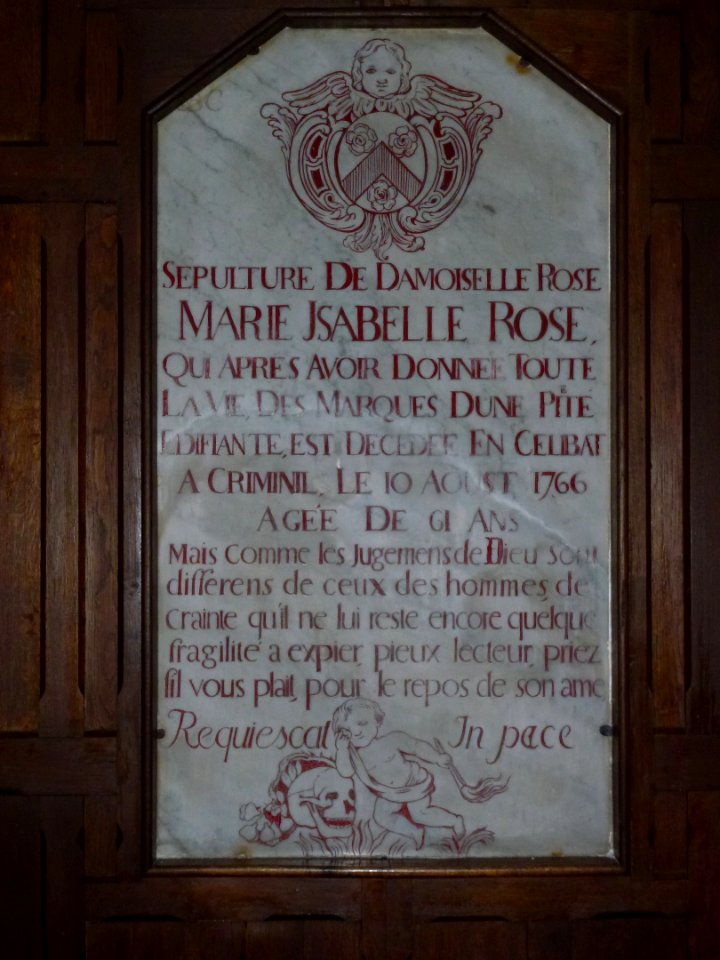 SEPULTURE DE DAMOISELLE ROSE
MARIE JSABELLE ROSE,
QUI APRES AVOIR DONNEE TOUTE
LA VIE, DES MARQUES DUNE PITÉ
EDIFIANTE, EST DECEDEE EN CELIBAT
A CRIMINIL, LE 10 AOUST 1766
AGÉE DE 61 ANS
Mais comme les Jugemens de Dieu sont
differens de ceux des hommes, de
crainte qu'il ne lui reste encore quelque
fragilité a expier, pieux lecteur, priez
s'il vous plait, pour le repos de son ame
Requiescat In pace